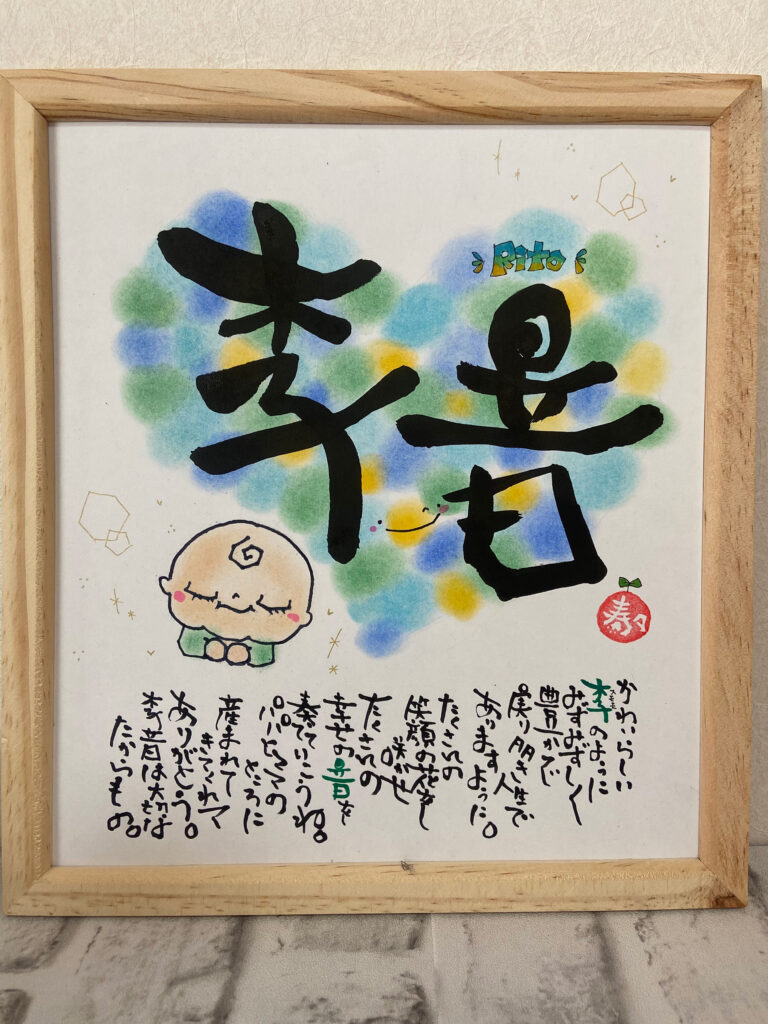 李音
Rito
寿々
かわいらしい
李のように
スモモ
みずみずしく
豊かで
実り多き人生で
ありますように。
たくさんの
笑顔の花を
咲かせ
たくさんの
幸せの音を
奏でていこうね。
パパとママの
ところに
産まれて
きてくれて
ありがとう。
李音は大切な
たからもの。